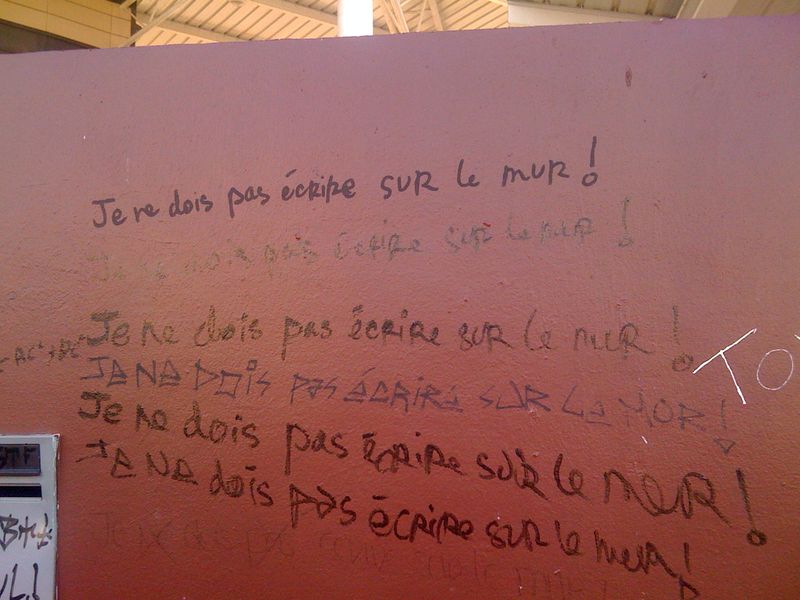 Je ne dois pas écrire sur le mur !
Je ne dois pas écrire sur le mur !
Je ne dois pas écrire sur le mur !
JE NE DOIS pas ÉCRIRE SUR LE MUR !
Je ne dois pas écrire sur le mur !
JE NE dois pas écrire sur le mur !
TO